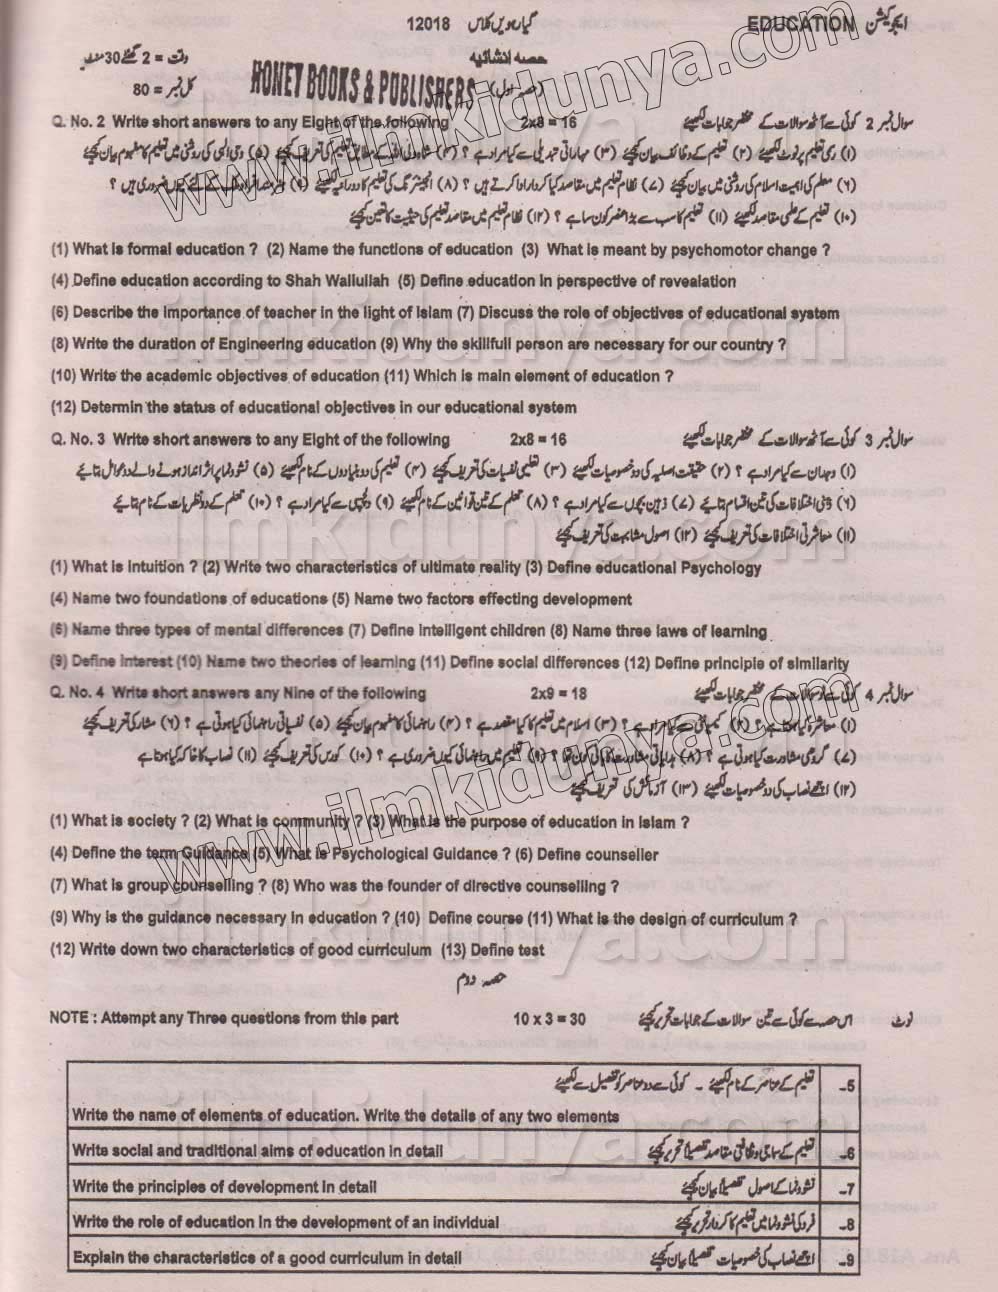 12018 گیارہویں کلاس EDUCATION ایجوکیشن
وقت = 2 گھنٹے 30 منٹ حصہ انشائیہ
کل نمبر = 80 HONET BOOKS & PUBLISHERS (حصہ اول)
Q. No. 2 Write short answers to any Eight of the following 2x8 = 16 سوال نمبر 2 کوئی سے آٹھ سوالات کے مختصر جوابات لکھیئے
(۱) رسمی تعلیم پر نوٹ لکھیئے (۲) تعلیم کے وظائف بیان کیجئے (۳) مہاراتی تبدیلی سے کیا مراد ہے ؟ (۴) شاہ ولی اللہ کے مطابق تعلیم کی تعریف کیجئے (۵) وحی الہی کی روشنی میں تعلیم کا مفہوم بیان کیجئے
(۶) معلم کی اہمیت اسلام کی روشنی میں بیان کیجئے (۷) نظام تعلیم میں مقاصد کیا کردار ادا کرتے ہیں ؟ (۸) انجینئرنگ کی تعلیم کا دورانیہ لکھیئے (۹) ہنر مند افراد ملک کے لئے کیوں ضروری ہیں ؟
(۱۰) تعلیم کے علمی مقاصد لکھیئے (۱۱) تعلیم کا سب سے بڑا عنصر کون سا ہے ؟ (۱۲) نظام تعلیم میں مقاصد تعلیم کی حیثیت کا تعین کیجئے
(1) What is formal education ? (2) Name the functions of education (3) What is meant by psychomotor change ?
(4) Define education according to Shah Wallullah (5) Define education in perspective of revealation
(6) Describe the importance of teacher in the light of Islam (7) Discuss the role of objectives of educational system
(8) Write the duration of Engineering education (9) Why the skillfull person are necessary for our country ?
(10) Write the academic objectives of education (11) Which is main element of education ?
(12) Determin the status of educational objectives in our educational system
Q. No. 3 Write short answers to any Eight of the following 2x8 = 16 سوال نمبر 3 کوئی سے آٹھ سوالات کے مختصر جوابات لکھیئے
(۱) وجدان سے کیا مراد ہے ؟ (۲) حقیقت اصلیہ کی دو خصوصیات لکھیئے (۳) تعلیمی نفسیات کی تعریف کیجئے (۴) تعلیم کی دو بنیادوں کے نام لکھیئے (۵) نشوونما پر اثر انداز ہونے والے دو عوامل بتائیے
(۶) ذہنی اختلافات کی تین اقسام بتائیے (۷) ذہین بچوں سے کیا مراد ہے ؟ (۸) تعلم کے تین قوانین کے نام لکھیئے (۹) دلچسپی سے کیا مراد ہے ؟ (۱۰) تعلم کے دو نظریات کے نام بتائیے
(۱۱) معاشرتی اختلافات کی تعریف کیجئے (۱۲) اصول مشابہت کی تعریف کیجئے
(1) What is Intuition ? (2) Write two characteristics of ultimate reality (3) Define educational Psychology
(4) Name two foundations of educations (5) Name two factors effecting development
(6) Name three types of mental differences (7) Define intelligent children (8) Name three laws of learning
(9) Define interest (10) Name two theories of learning (11) Define social differences (12) Define principle of similarity
Q. No. 4 Write short answers any Nine of the following 2x9 = 18 سوال نمبر 4 کوئی سے نو سوالات کے مختصر جوابات لکھیئے
(۱) معاشرہ کیا ہوتا ہے ؟ (۲) کمیونٹی سے کیا مراد ہے ؟ (۳) اسلام میں تعلیم کا کیا مقصد ہے ؟ (۴) راہنمائی کا مفہوم بیان کیجئے (۵) نفسیاتی راہنمائی کیا ہوتی ہے ؟ (۶) مشار کی تعریف کیجئے
(۷) گروہی مشاورت کیا ہوتی ہے ؟ (۸) ہدایاتی مشاورت کا بانی کون تھا ؟ (۹) تعلیم میں راہنمائی کیوں ضروری ہے ؟ (۱۰) کورس کی تعریف کیجئے (۱۱) نصاب کا خاکہ کیا ہوتا ہے
(۱۲) اچھے نصاب کی دو خصوصیات لکھیئے (۱۳) آزمائش کی تعریف کیجئے
(1) What is society ? (2) What is community ? (3) What is the purpose of education in Islam ?
(4) Define the term Guidance (5) What is Psychological Guidance ? (6) Define counseller
(7) What is group counselling ? (8) Who was the founder of directive counselling ?
(9) Why is the guidance necessary in education ? (10) Define course (11) What is the design of curriculum ?
(12) Write down two characteristics of good curriculum (13) Define test
حصہ دوم
NOTE : Attempt any Three questions from this part 10 x 3 = 30 نوٹ اس حصہ سے کوئی سے تین سوالات کے جوابات تحریر کیجئے
5۔ تعلیم کے عناصر کے نام لکھیئے ۔ کوئی سے دو عناصر کو تفصیل سے لکھیئے
Write the name of elements of education. Write the details of any two elements
Write social and traditional aims of education in detail 6۔ تعلیم کے سماجی و ثقافتی مقاصد تفصیلاً تحریر کیجئے
Write the principles of development in detail 7۔ نشوونما کے اصول تفصیلاً بیان کیجئے
Write the role of education in the development of an individual 8۔ فرد کی نشوونما میں تعلیم کا کردار تحریر کیجئے
Explain the characteristics of a good curriculum in detail 9۔ اچھے نصاب کی خصوصیات تفصیلاً بیان کیجئے
www.ilmkidunya.com
ilmkidunya.com
ilmkidunya.com
www.ilmkidunya.com
ilmkidunya.com
ilmkidunya.com